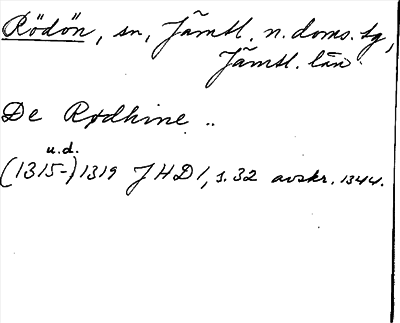 Rödön, sn, Jämtl. n. doms. tg,
Jämtl. län.
De Rødhine ..
u.d.
(1315-) 1319 JHD 1, s. 32 avskr. 1344.